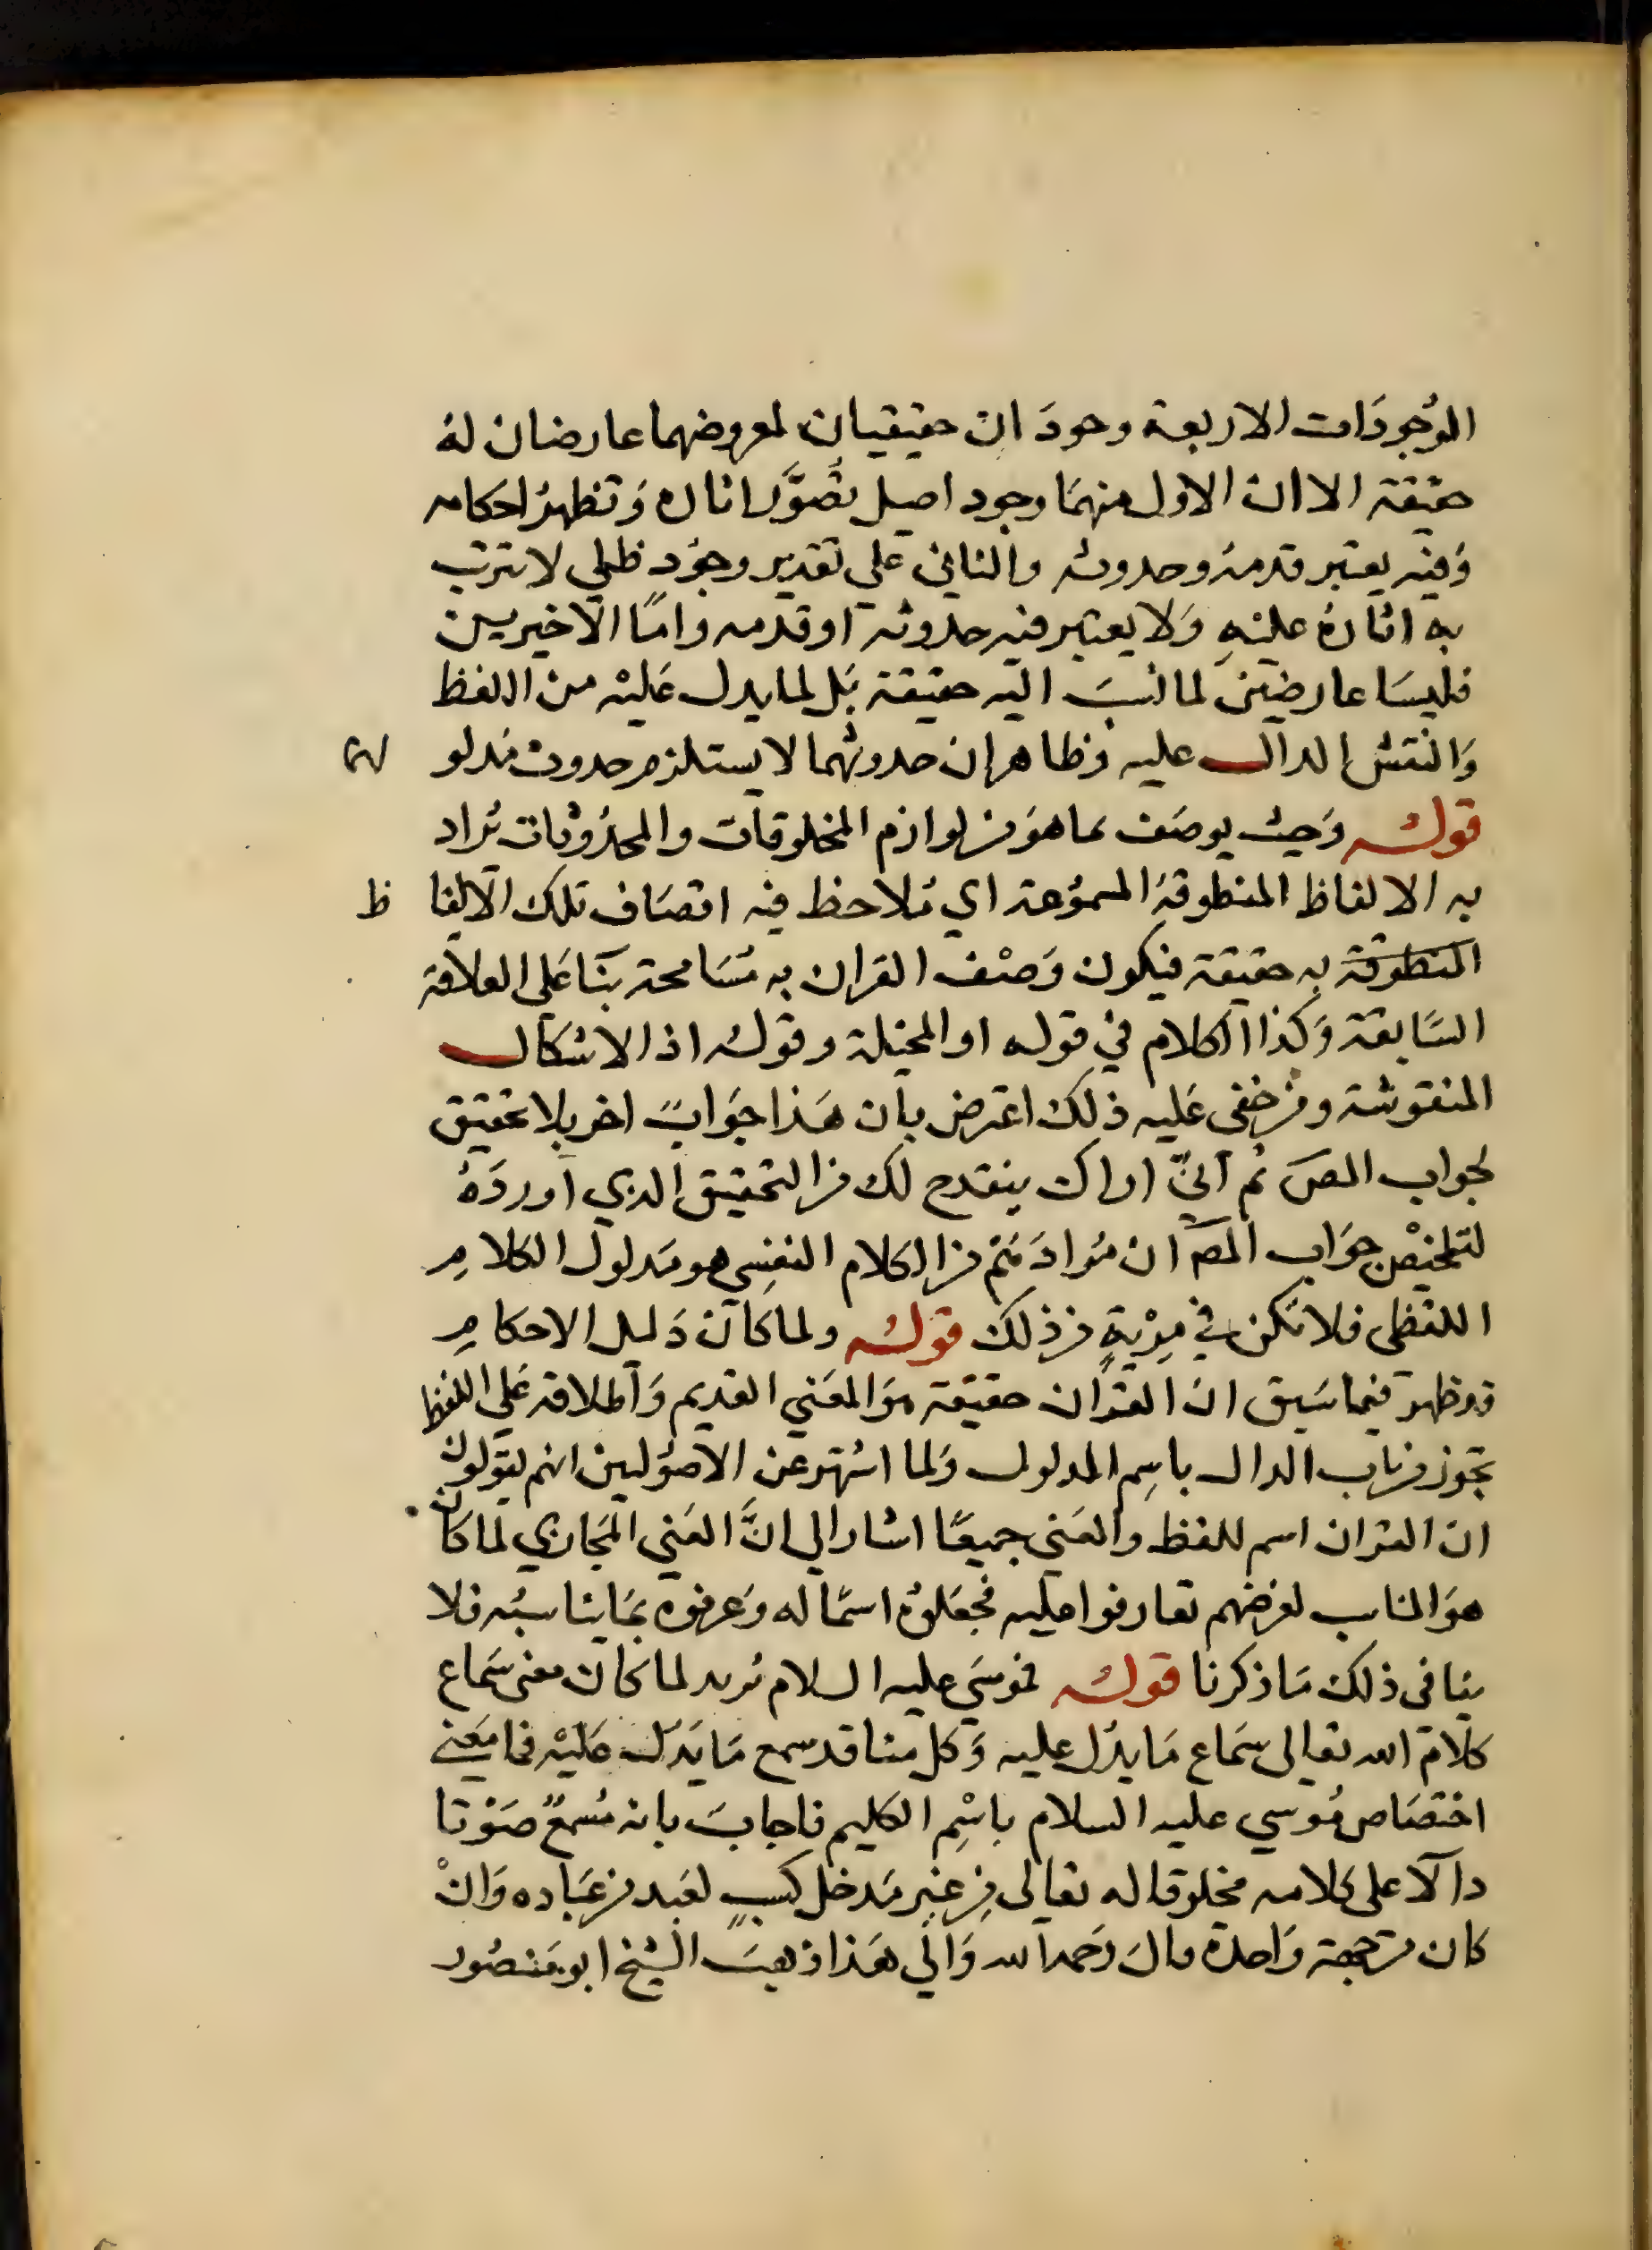 الوُجودَات الاربعة وجودَ ان حقيقيان لمعروضهما عارضان له
حقيقة الا ان الاول منهمَا وجود اصيل تُصَوَّر اثاره وَتظهرُ احكامه
وَفيه يعتبر قدمهُ وحدوثه والثاني علي تقدير وجوُد ظلي لا تترتب
به اثارهُ عليْهِ وَلا يعتبر فيه حدوثه او قدمه وامّا الاخيريين
فليسَا عارضَين لما نُسبَ اليه حقيقة بَل لما يدل عَليْه من اللفظ
وَالنقش الدال عليه وظاهر ان حدوثهما لا يستلزم حدوث مَدلو لهما
قوله وَحيث يوصَف بما هوَ من لوازم المخلوقات والمحدُوثات يُراد
به الالفاظ المنطوقةُ المسموُعة اي تلاحظ فيه اتصَاف تلك الالفا ظ
المنطوقة به حقيقة فيكون وَصْف القران به مُسَامحة بنَا عَلى العلاقة
السَّابقة وَكذا الكلام في قوله او المخيلة وقوله اذ الاشكال
المنقوشة ومن خفى عَليه ذلك اعترض بان هَذا جوَابٌ اخر بلا تحقيق
لجواب المصَ ثم انيّ اراك ينقدح لك من التحقيق الذي اوردَهُ
لتلخيْص جوَاب المصَ ان مُرادَ هُم من الكلام النفسِي هو مَدلول الكلامِ
اللفظى فلا تكن في مِرْيةٍ من ذلك قوله ولما كان دَليل الاحكامِ
قد ظهر فيما سَبق ان القرْان حقيقة هوَ المعَني القديم وَاطلاقه عَلى اللفظ
تجوز من باب الدال باسِم المدلول وَلما اشتهر عن الاصُوُليين انهم يقولون
ان القران اسم للفظ والمعَني جميعًا اشار الي انَّ المعَني المجَازي لما كان
هوَ المناسب لغرضهم تعارفوا عليه فجعَلوُه اسمًا له وَعرفوه بمَا يناسبُه فلا
ينافى ذلك مَا ذكرنا قوله فموسَي عليه السلام يُريد لما كان معنى سَماع
كلامَ الله تعالى سَماع مَا يدُل عليه وَكل منا قد سمع مَا يَدل عَليْه فما مَعني
اختصَاص مُوسي عليه السلام باسْمِ الكليم فاجابَ بانه سُمعٌ صَوْتا
دآلا على كلامه مخلوقا له تعالى مِن غير مَدخل كسبٍ لعَبد من عبَاده وَانْ
كان من جهة وَاحدة قالَ رَحمه الله وَالي هَذا ذهبَ الشيخ ابو مَنصُور